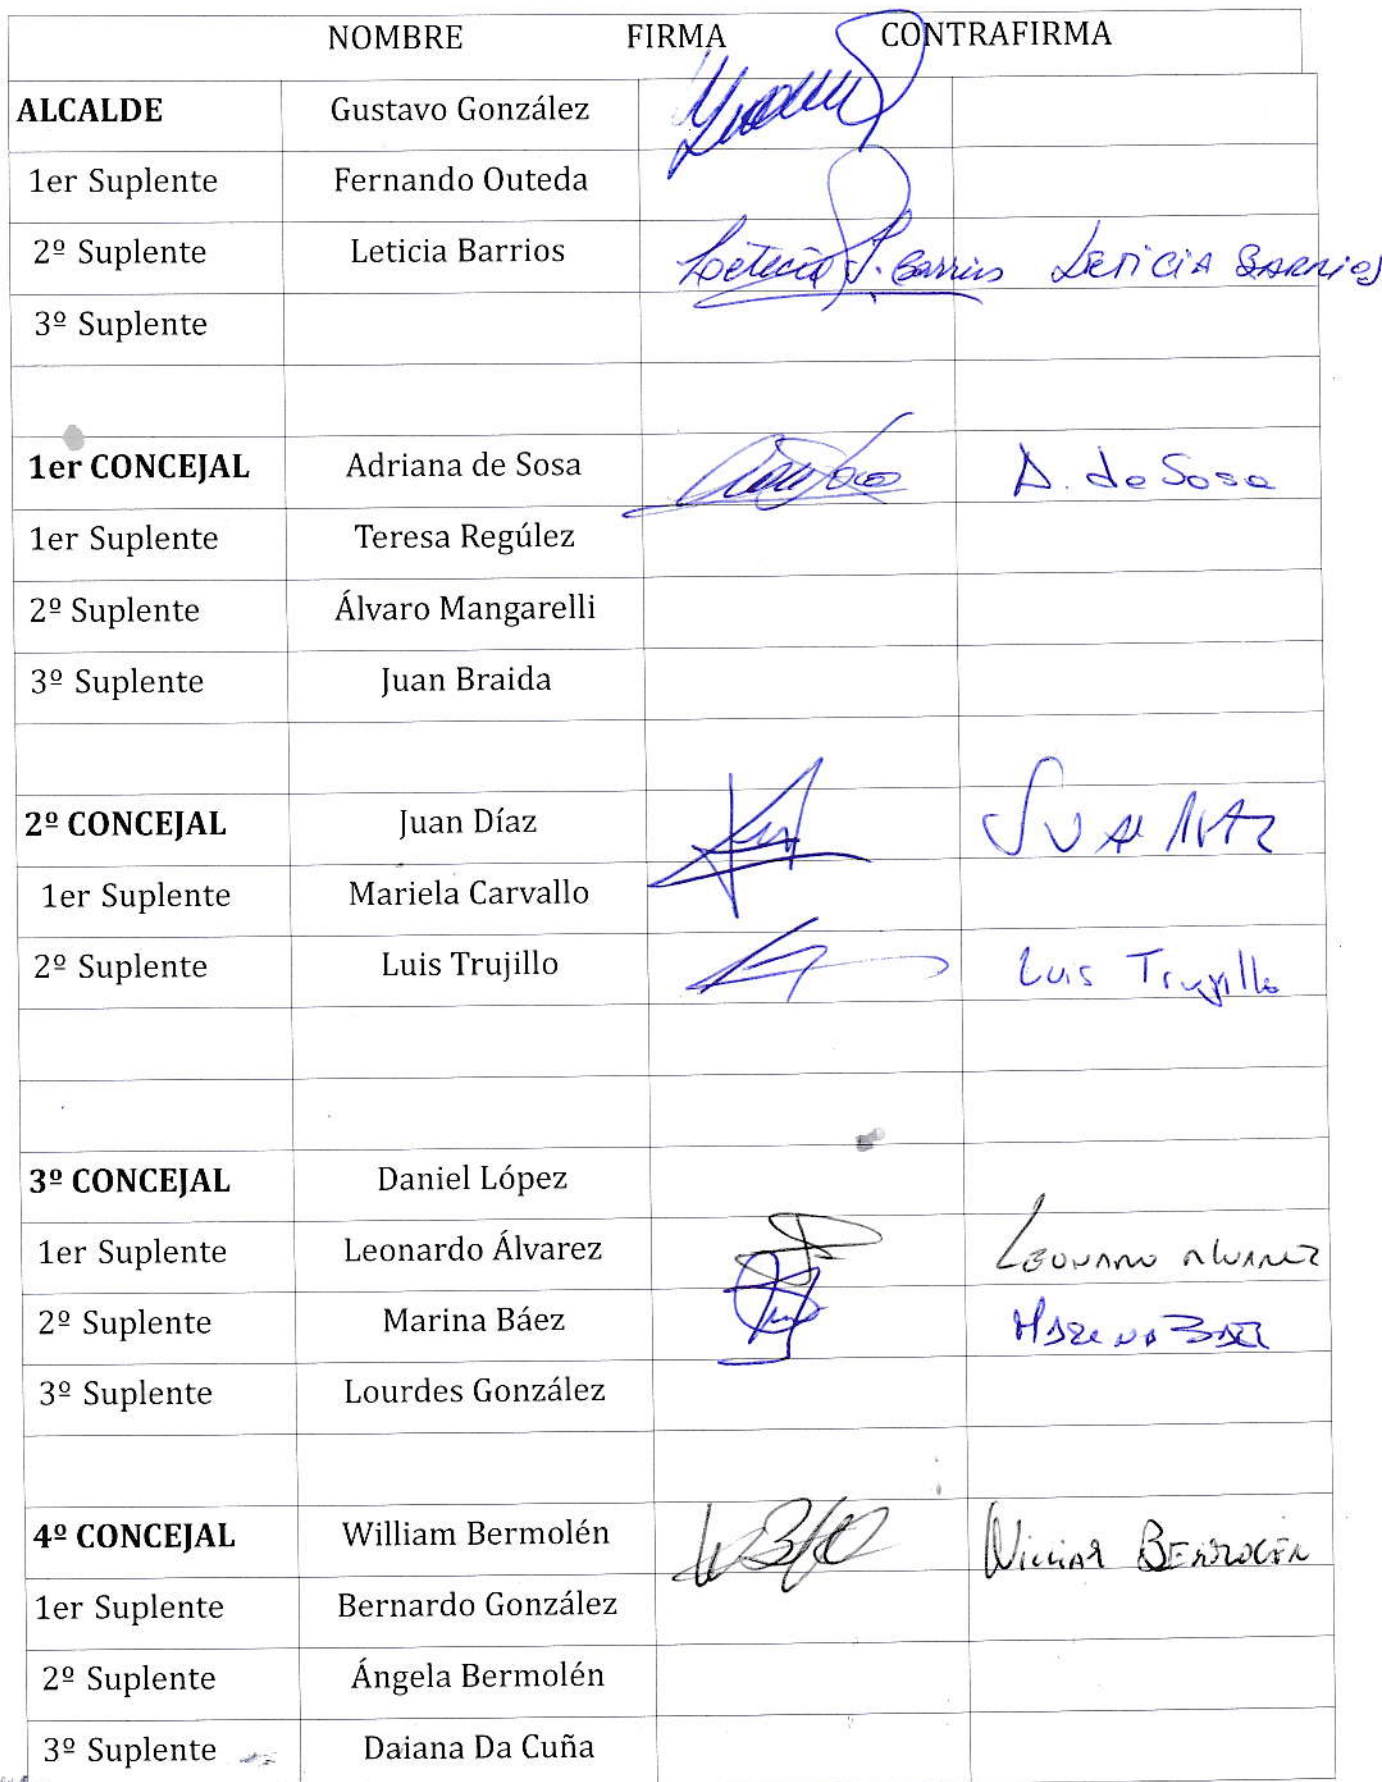 NOMBRE FIRMA CONTRAFIRMA
ALCALDE Gustavo González
1er Suplente Fernando Outeda
2º Suplente Leticia Barrios Leticia S. Barrios LETICIA BARRIOS
3º Suplente
1er CONCEJAL Adriana de Sosa A. de Sosa
1er Suplente Teresa Regúlez
2º Suplente Álvaro Mangarelli
3º Suplente Juan Braida
2º CONCEJAL Juan Díaz JUAN DIAZ
1er Suplente Mariela Carvallo
2º Suplente Luis Trujillo Luis Trujillo
3º CONCEJAL Daniel López
1er Suplente Leonardo Álvarez LEONARDO ALVAREZ
2º Suplente Marina Báez MARINA BAEZ
3º Suplente Lourdes González
4º CONCEJAL William Bermolén WILLIAM BERMOLÉN
1er Suplente Bernardo González
2º Suplente Ángela Bermolén
3º Suplente Daiana Da Cuña